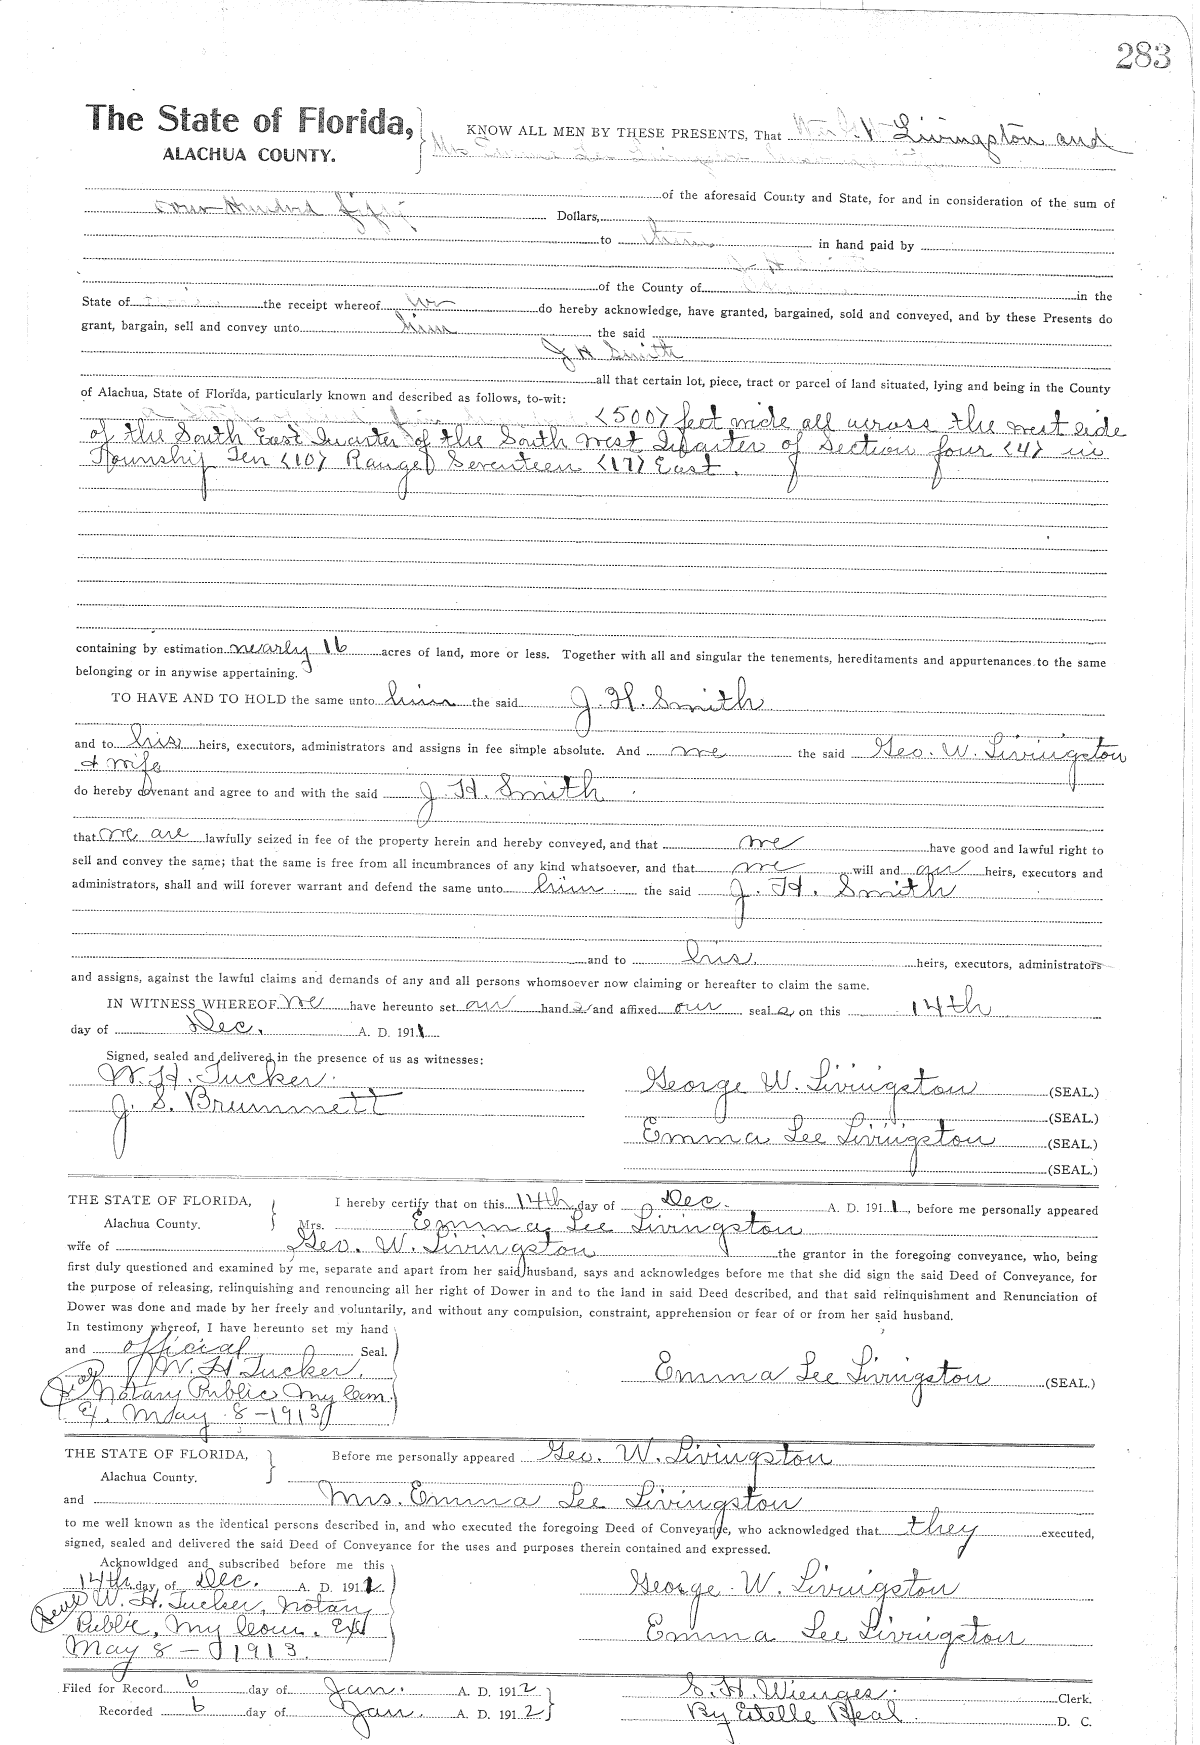 283
The State of Florida,
ALACHUA COUNTY.
KNOW ALL MEN BY THESE PRESENTS, That W. Livingston and
Mrs Emma Lee Livingston
of the aforesaid County and State, for and in consideration of the sum of
Hundred fifty Dollars,
to in hand paid by
of the County of in the
State of the receipt whereof we do hereby acknowledge, have granted, bargained, sold and conveyed, and by these Presents do
grant, bargain, sell and convey unto him the said
J H Smith
all that certain lot, piece, tract or parcel of land situated, lying and being in the County
of Alachua, State of Florida, particularly known and described as follows, to-wit:
a <500> feet wide all across the west side
of the South East Quarter of the South West Quarter of Section four <4> in
Township Ten <10> Range Seventeen <17> East.
containing by estimation nearly 16 acres of land, more or less. Together with all and singular the tenements, hereditaments and appurtenances to the same
belonging or in anywise appertaining.
TO HAVE AND TO HOLD the same unto him the said J. H. Smith
and to his heirs, executors, administrators and assigns in fee simple absolute. And we the said Geo. W. Livingston
& wife
do hereby covenant and agree to and with the said J. H. Smith
that we are lawfully seized in fee of the property herein and hereby conveyed, and that we have good and lawful right to
sell and convey the same; that the same is free from all incumbrances of any kind whatsoever, and that we will and our heirs, executors and
administrators, shall and will forever warrant and defend the same unto him the said J. H. Smith
and to his heirs, executors, administrators
and assigns, against the lawful claims and demands of any and all persons whomsoever now claiming or hereafter to claim the same.
IN WITNESS WHEREOF we have hereunto set our hands and affixed our seals on this 14th
day of Dec. A. D. 1911
Signed, sealed and delivered in the presence of us as witnesses:
W. H. Tucker.
J. S. Brummett
George W. Livingston (SEAL.)
(SEAL.)
Emma Lee Livingston (SEAL.)
(SEAL.)
THE STATE OF FLORIDA,
Alachua County.
I hereby certify that on this 14th day of Dec. A. D. 1911, before me personally appeared
Mrs. Emma Lee Livingston
wife of Geo. W. Livingston the grantor in the foregoing conveyance, who, being
first duly questioned and examined by me, separate and apart from her said husband, says and acknowledges before me that she did sign the said Deed of Conveyance, for
the purpose of releasing, relinquishing and renouncing all her right of Dower in and to the land in said Deed described, and that said relinquishment and Renunciation of
Dower was done and made by her freely and voluntarily, and without any compulsion, constraint, apprehension or fear of or from her said husband.
In testimony whereof, I have hereunto set my hand
and official Seal.
W. H. Tucker.
Seal Notary Public My Com.
Ex. May 8-1913
Emma Lee Livingston (SEAL.)
THE STATE OF FLORIDA,
Alachua County.
Before me personally appeared Geo. W. Livingston
and Mrs. Emma Lee Livingston
to me well known as the identical persons described in, and who executed the foregoing Deed of Conveyance, who acknowledged that they executed,
signed, sealed and delivered the said Deed of Conveyance for the uses and purposes therein contained and expressed.
Acknowldged and subscribed before me this
14th day of Dec. A. D. 1911
Seal W. H. Tucker, Notary
Public, My Com. Ex
May 8-1913.
George W. Livingston
Emma Lee Livingston
Filed for Record 6 day of Jan. A. D. 1912
Recorded 6 day of Jan. A. D. 1912
S. H. Wienges. Clerk.
By Estelle Beal. D. C.